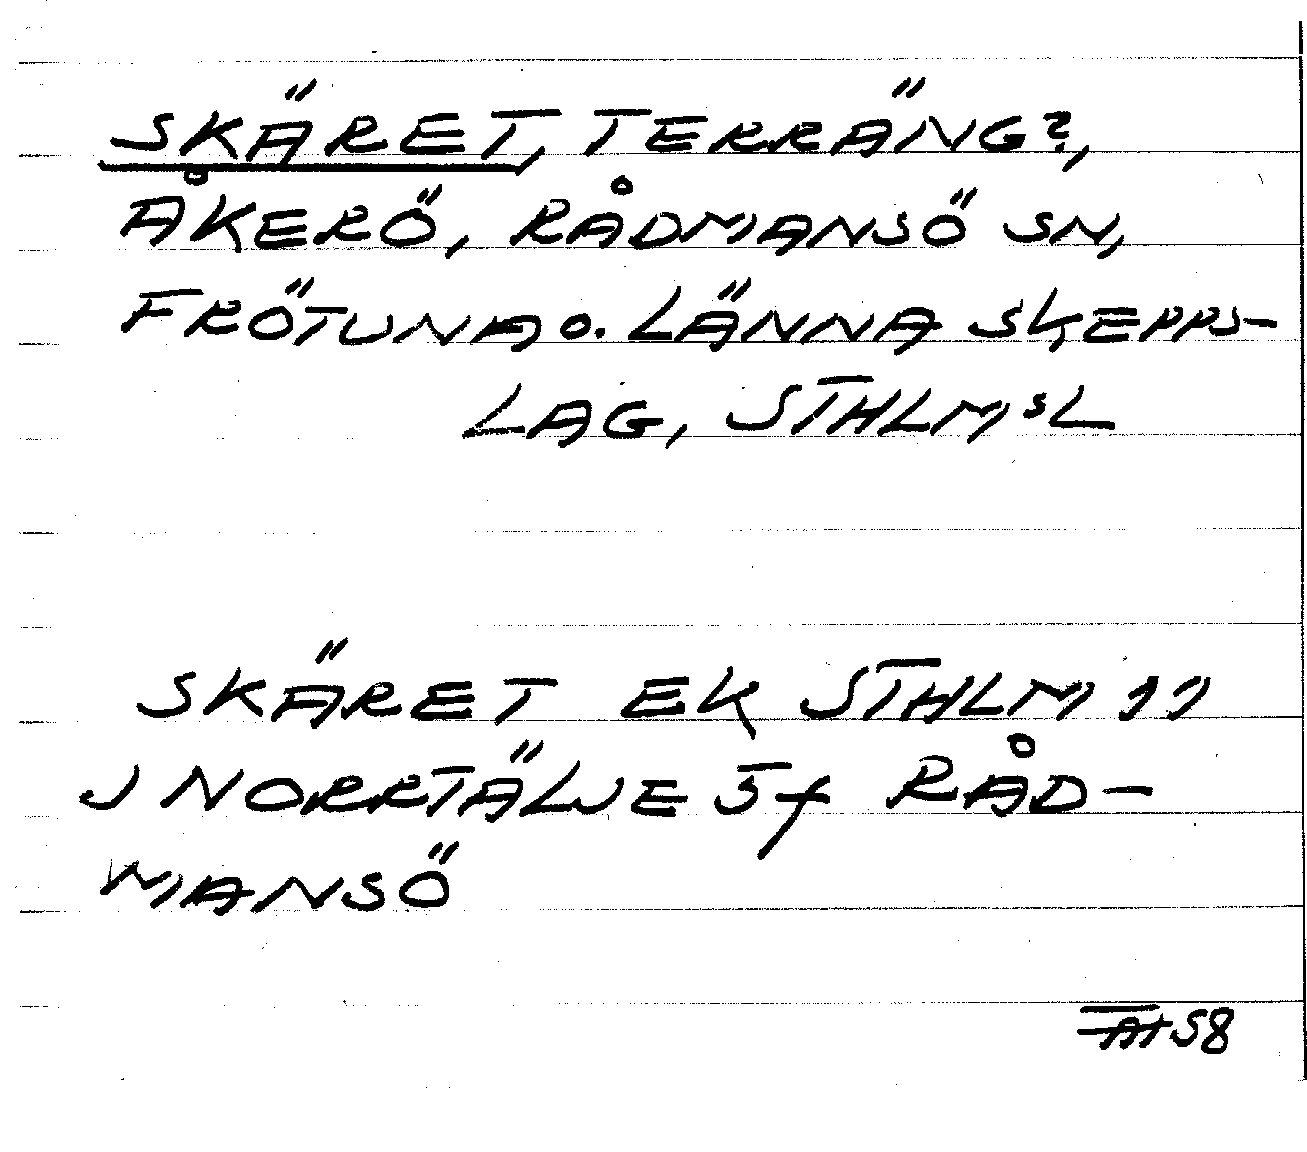 SKÄRET, TERRÄNG?,
ÅKERÖ, RÅDMANSÖ SN,
FRÖTUNA O. LÄNNA SKEPPS-
LAG, STHLMSL
SKÄRET EK STHLM 11
J NORRTÄLJE 5f RÅD-
MANSÖ
58